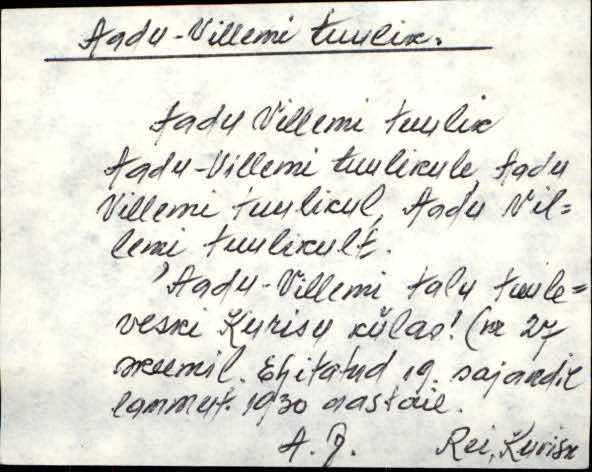 Aadu-Villemi tuulik.
Aadu Villemi tuulik
Aadu-Villemi tuulikule, Aadu
Villemi tuulikul, Aadu Vil=
lemi tuulikult.
'Aadu-Villemi talu tuule=
veski Kurisu külas! (nr 27
skeemil. Ehitatud 19. sajandil
lammut. 1930 aastail.
A. J. Rei, Kurisu